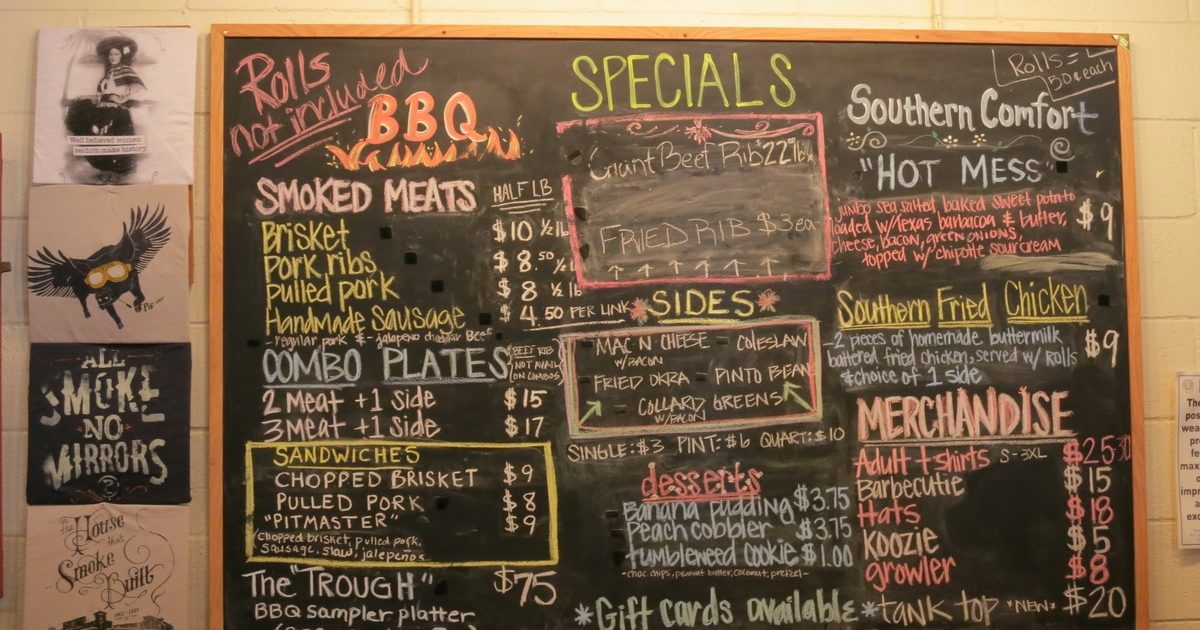 Well behaved women
seldom make history
ALL
SMOKE
NO
MIRRORS
the House
that
Smoke
Built
Rolls
not included
BBQ
SMOKED MEATS
HALF LB
Brisket $10 ½ lb
pork ribs $8.50 ½
pulled pork $8 ½ lb
Handmade Sausage $4.50 PER LINK
- regular pork & - jalapeno cheddar Beef
COMBO PLATES
(BEEF RIB
NOT AVAIL
ON COMBOS)
2 Meat + 1 side $15
3 Meat + 1 side $17
SANDWICHES
CHOPPED BRISKET $9
PULLED PORK $8
"PITMASTER" $9
Chopped brisket, pulled pork,
sausage, slaw, jalepeños
The "TROUGH" $75
BBQ sampler platter
SPECIALS
Giant Beef Rib 22 lb
FRIED RIB $3 ea
SIDES
MAC N CHEESE - COLESLAW
W/BACON
- FRIED OKRA - PINTO BEAN
- COLLARD GREENS
W/BACON
SINGLE: $3 PINT: $6 QUART: $10
desserts
Banana pudding $3.75
peach cobbler $3.75
tumbleweed cookie $1.00
- choc. chips, peanut butter, coconut, pretzel -
*Gift cards available*
Rolls =
50¢ each
Southern Comfort
"HOT MESS"
jumbo sea salted, baked sweet potato
loaded w/texas barbacoa & butter,
cheese, bacon, green onions,
topped w/ chipotle sour cream
$9
Southern Fried Chicken
- 2 pieces of homemade buttermilk
battered fried chicken, served w/ rolls
& choice of 1 side
$9
MERCHANDISE
Adult t-shirts S-3XL $25-30
Barbecutie $15
Hats $18
Koozie $5
growler $8
tank top *NEW* $20